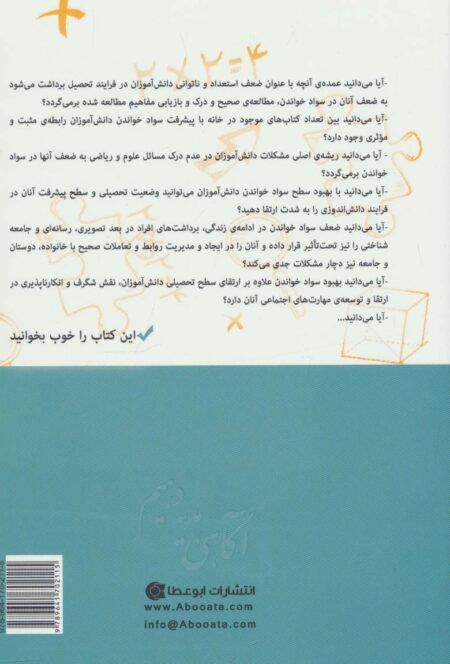 ۲×۲=۴
-آیا می‌دانید عمده‌ی آنچه با عنوان ضعف استعداد و ناتوانی دانش‌آموزان در فرایند تحصیل برداشت می‌شود
به ضعف آنان در سواد خواندن، مطالعه‌ی صحیح و درک و بازیابی مفاهیم مطالعه شده برمی‌گردد؟
-آیا می‌دانید بین تعداد کتاب‌های موجود در خانه با پیشرفت سواد خواندن دانش‌آموزان رابطه‌ی مثبت و
مؤثری وجود دارد؟
- آیا می‌دانید ریشه‌ی اصلی مشکلات دانش‌آموزان در عدم درک مسائل علوم و ریاضی به ضعف آنها در سواد
خواندن برمی‌گردد؟
-آیا می‌دانید با بهبود سطح سواد خواندن دانش‌آموزان می‌توانید وضعیت تحصیلی و سطح پیشرفت آنان در
فرایند دانش‌اندوزی را به شدت ارتقا دهید؟
-آیا می‌دانید ضعف سواد خواندن در ادامه‌ی زندگی، برداشت‌های افراد در بعد تصویری، رسانه‌ای و جامعه
شناختی را نیز تحت‌تأثیر قرار داده و آنان را در ایجاد و مدیریت روابط و تعاملات صحیح با خانواده، دوستان
و جامعه نیز دچار مشکلات جدی می‌کند؟
-آیا می‌دانید بهبود سواد خواندن علاوه بر ارتقای سطح تحصیلی دانش‌آموزان، نقش شگرف و انکارناپذیری در
ارتقا و توسعه‌ی مهارت‌های اجتماعی آنان دارد؟
-آیا می‌دانید...
این کتاب را خوب بخوانید
آگاهی هدیه دهیم
انتشارات ابوعطا
www.Abooata.com
info@Abooata.com
9789641702115